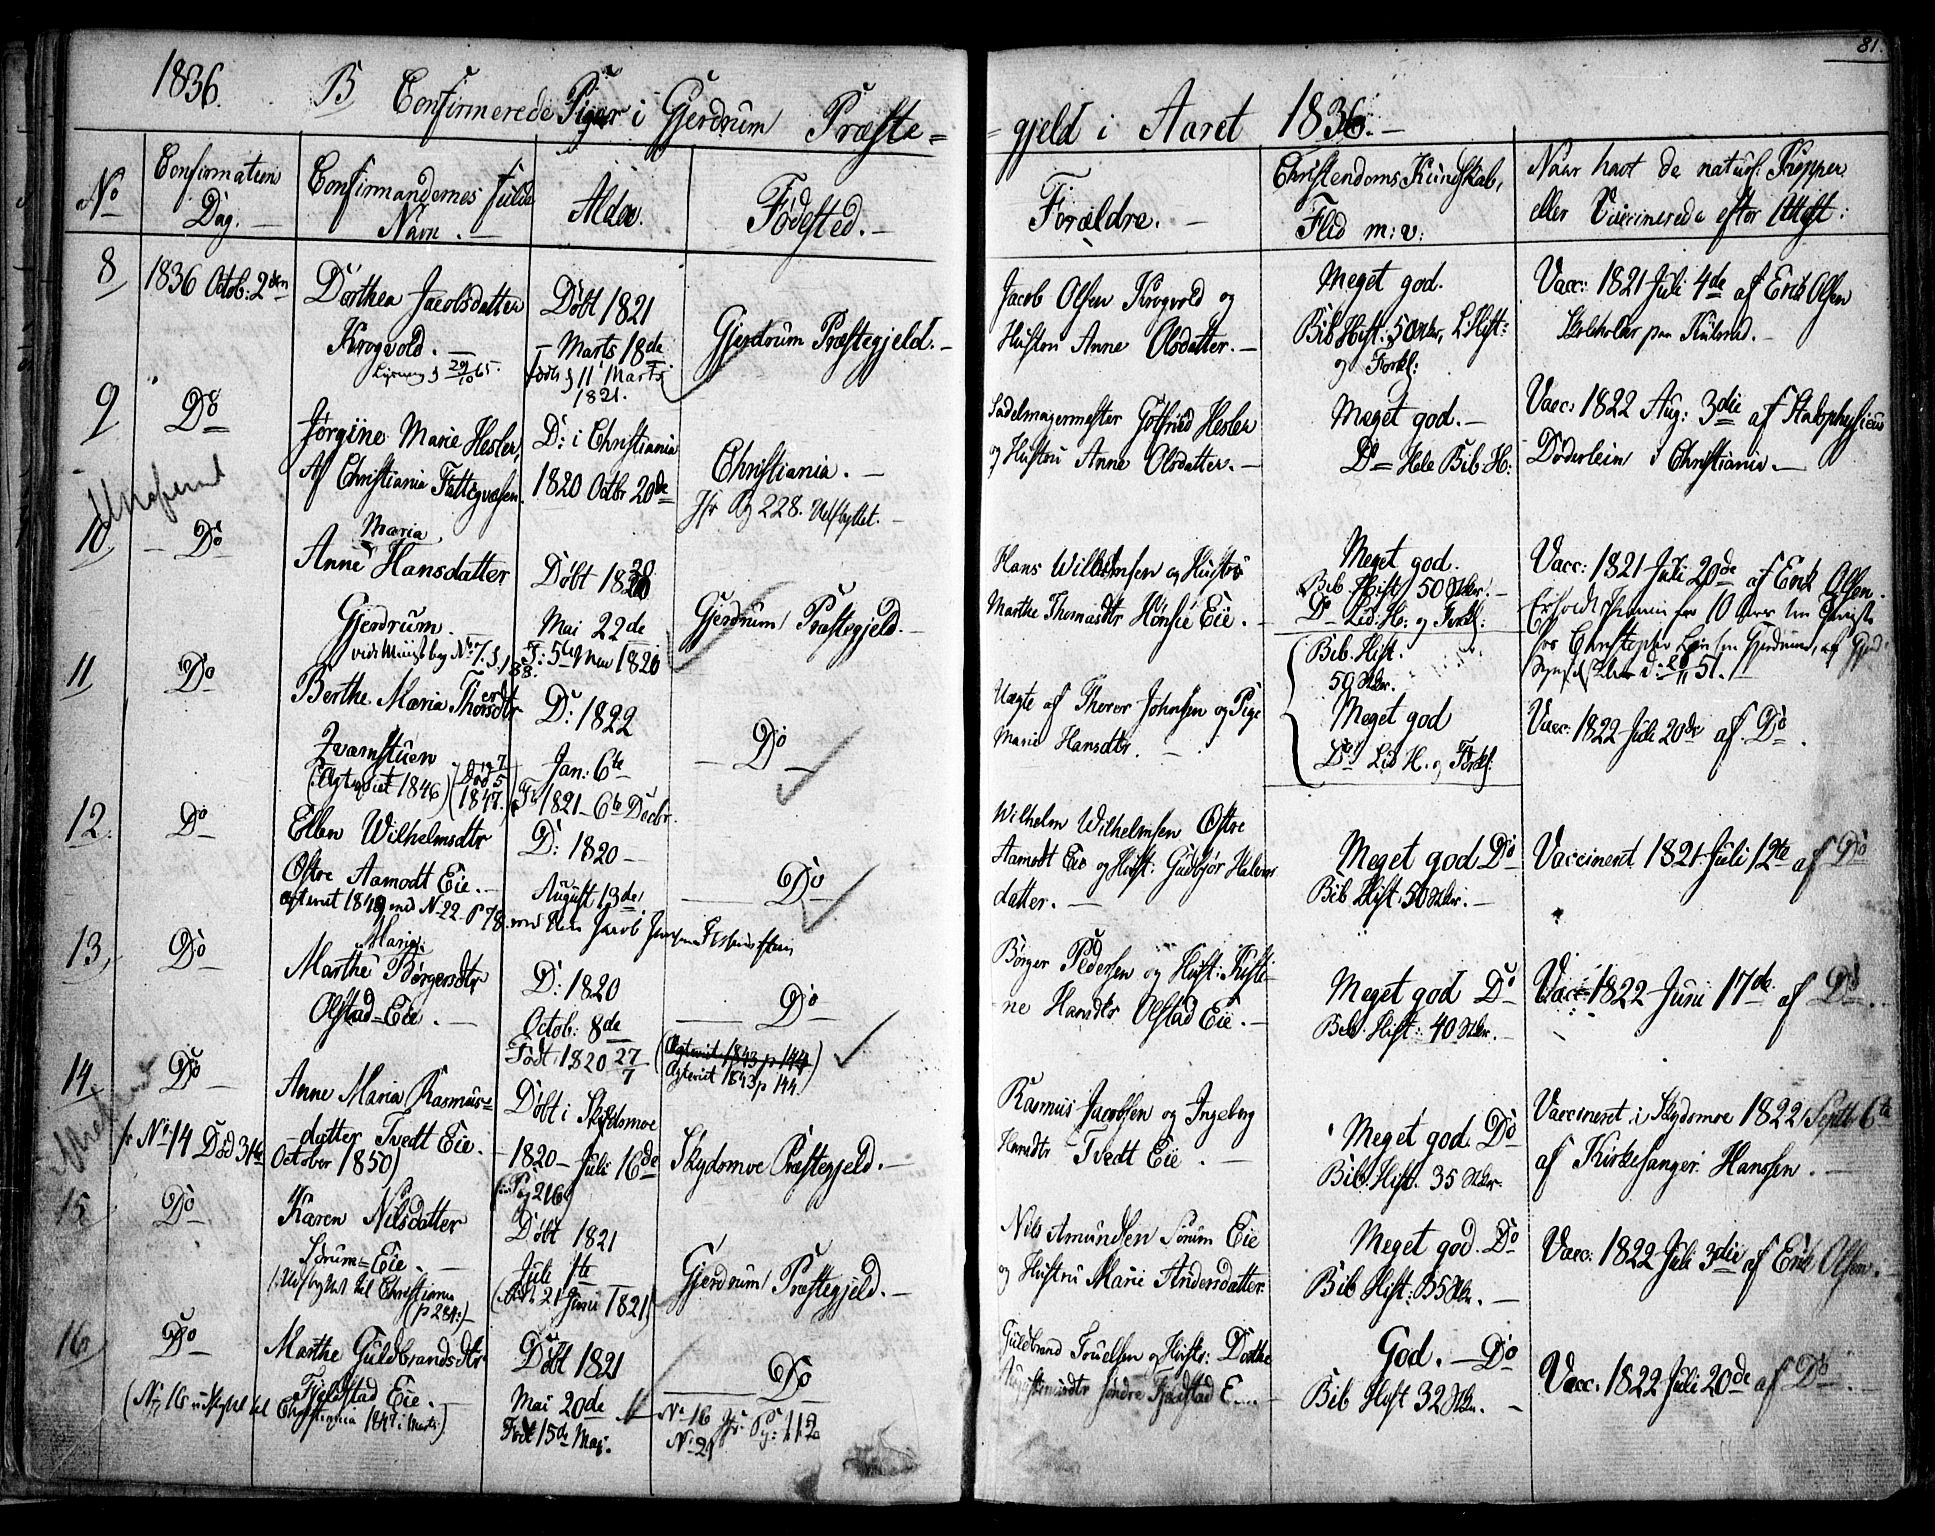 81.
1836. B Confirmerede Piger i Gjerdrum Præste=
=gjeld i Aaret 1836.
No
Confirmations
Dag.
Confirmandernes fulde
Navn.
Alder.
Fødested.
Forældre.
Christendoms Kundskab,
Flid m: v:
Naar havt de naturl: Kopper
eller Vaccinerede efter Attest:
8
1836 Octob: 2den
Dorthea Jacobsdatter
Krogvold.
Døbt 1821
Marts 18de
født d 11 Marts
1821.
Gjerdrum Præstegjeld.
Jacob Olsen Krogvold og
Hustru Anne Olsdatter.
Meget god.
Bib Hist: 50 Stkr, L Hist:
og Forkl:
Vacc: 1821 Juli 4de af Erik Olsen
9
Do
Jørgine Marie Hesler,
Af Christiania Fattigvæsen.
D: i Christiania
1820 Octbr 20de
Christiania.
Jfr Pg 228. Udflyttet.
Sadelmagermester Gotfried Hesler
og Hustru Anne Olsdatter.
Meget god.
Do Hele Bib: H:
Vacc: 1822 Aug: 3die af Stadsphysicus
Døderlein i Christiania.
10
Do
Maria
Anne Hansdatter
Gjerdrum.
Døbt 1820
Mai 22de
F: 5te Mai 1820
Gjerdrum Præstegjeld.
Hans Wilhelmsen og Hustru
Marthe Thomasdtr Hønsie Eie.
Meget god.
Bib Hist 50 Stkr.
Do Lid: H: og Forkl:
Vacc: 1821 Juli 20de af Erik Olsen.
11
Do
Berthe Maria Thorersdtr
Qvarnstuen
(Ægteviet 1846)
1847.
D: 1822
Jan: 6te
F. 1821 6te Decbr.
Do
Uægte af Thorer Johnsen og Pige
Marie Hansdtr.
Bib. Hist.
50 Stkr.
Meget god
Do Lid H. og Forkl.
Vacc: 1822 Juli 20de af Do.
12.
Do
Ellen Wilhelmsdtr
Østre Aamodt Eie.
D: 1820
August 13de
Do
Wilhelm Wilhelmsen Østre
Aamodt Eie og Hust: Gudbjør Halvors
datter.
Meget god Do
Bib Hist. 50 Stkr.
Vaccineret 1821 Juli 12te af Do
13
Do
Maria
Marthe Børgersdtr
Olstad=Eie.
D: 1820
Octob: 8de
Født 1820 27/7
Do
(Ægteviet 1843 p 144)
Ægteviet 1843 p 144
Børger Pedersen og Hust: Kisti=
ne Hansdtr Olstad Eie.
Meget god Do
Bib. Hist: 40 Stkr.
Vacc: 1822 Juni 17de af Do.
14.
Do
Anne Maria Rasmus=
datter Tvedt Eie.
No 14 Død 31te
October 1850)
Døbt i Skydsmoe
1820 Juli 16de
Pag 216
Skydsmoe Præstegjeld.
Rasmus Jacobsen og Ingeborg
Hansdtr Tvedt Eie.
Meget god Do
Bib. Hist. 35 Stkr.
Vaccineret i Skydsmoe 1822 Septb 6te
af Kirkesanger Hanssen.
15
Do
Karen Nilsdatter
Sørum=Eie.
(Udflyttet til Christiania
p 284:)
Døbt 1821
Juli 1te
(født 21 Juni 1821)
Gjerdrum Præstegjeld.
Nils Amundsen Sørum Eie
og Hustru Marie Andersdatter
Meget god. Do
Bib Hist: 35 Stkr.
Vacc: 1822 Juli 3die af Erik Olsen.
16
Do
Marthe Guldbrandsdtr
Tjelstad Eie.
(No 16 udflyttet til Christiania 1847 i Marts)
Døbt 1821
Mai 20de
Født 15de Maj.
Do
No 16 Jfr Pg: 112
No 29
Guldbrand Truelsen og Hustr: Dorthe
Augustinusdtr søndre Tjelstad E
God. Do
Bib Hist 32 Stkr.
Vacc. 1822 Juli 20de af Do.